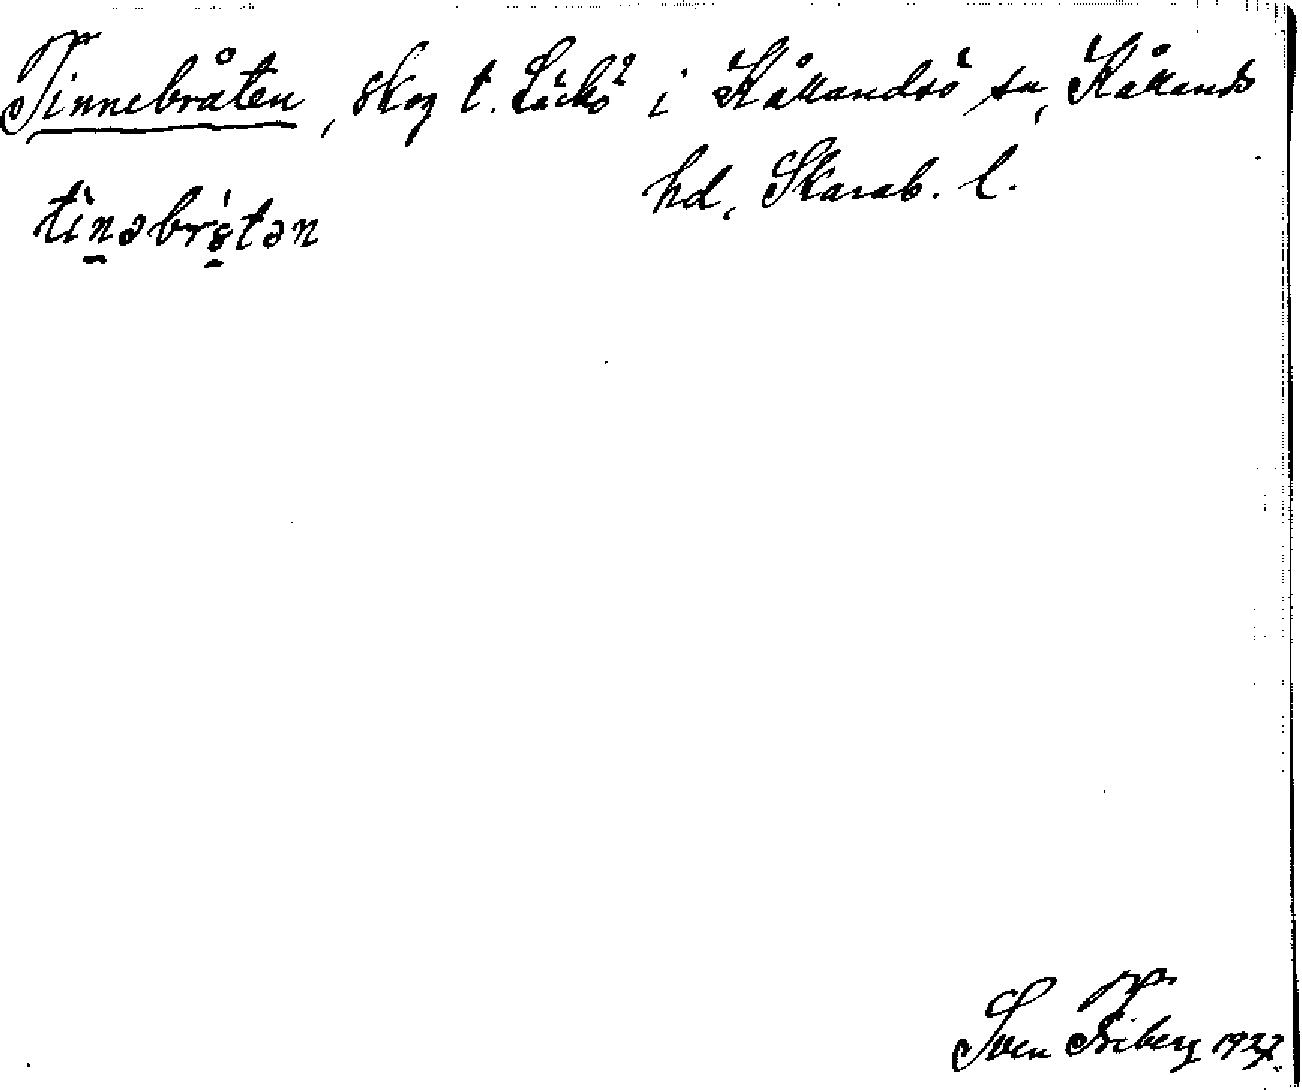 Tinnebråten, skog t. Läckö² i Kållandsö sn, Kållands
hd, Skarab. l.
tìnəbrǻtən
Sven Friberg 1927.